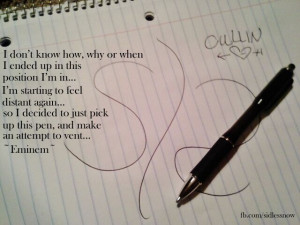 I don't know how, why or when
I ended up in this
position I'm in...
I'm starting to feel
distant again...
so I decided to just pick
up this pen, and make
an attempt to vent...
~Eminem~
fb.com/sidlessnow